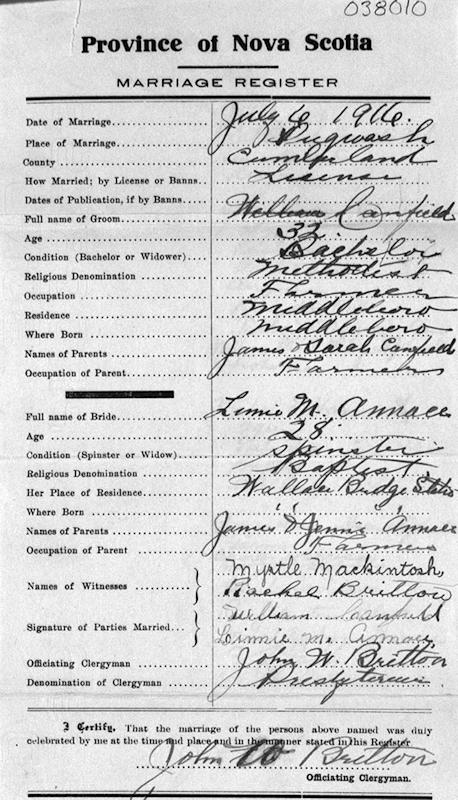 038010
Province of Nova Scotia
MARRIAGE REGISTER
Date of Marriage July 6 1916.
Place of Marriage Pugwash
County Cumberland
How Married; by License or Banns License
Dates of Publication, if by Banns
Full name of Groom William Canfield
Age 32
Condition (Bachelor or Widower) Bachelor
Religious Denomination Methodist
Occupation Farmer
Residence Middleboro
Where Born Middleboro
Names of Parents James & Sarah Canfield
Occupation of Parent Farmer
Full name of Bride M. Annace
Age 28
Condition (Spinster or Widow) Spinster
Religious Denomination Baptist
Her Place of Residence Wallace Bridge
Where Born " "
Names of Parents James & Jennie Annace
Occupation of Parent Farmer
Names of Witnesses Myrtle Mackintosh,
Rachel Britton
Signature of Parties Married William Canfield
Linnie M. Annace
Officiating Clergyman John W. Britton
Denomination of Clergyman Presbyterian
I Certify, That the marriage of the persons above named was duly
celebrated by me at the time and place and in the manner stated in this Register
John W Britton
Officiating Clergyman.